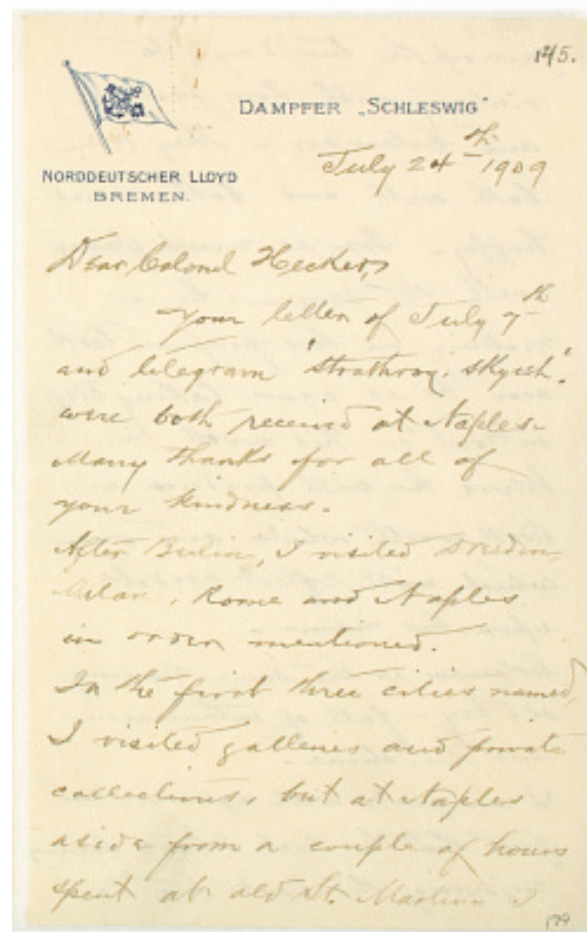 145.
DAMPFER „SCHLESWIG“
July 24th 1909
NORDDEUTSCHER LLOYD
BREMEN.
Dear Colonel Hecker,
Your letter of July 7th
and telegram "Strathroy,
were both received at Naples.
Many thanks for all of
your kindness.
After Berlin, I visited Dresden
Milan, Rome and Naples
in order mentioned.
In the first three cities named,
I visited galleries and private
collections, but at Naples
aside from a couple of hours
spent at old St. Martino I
179